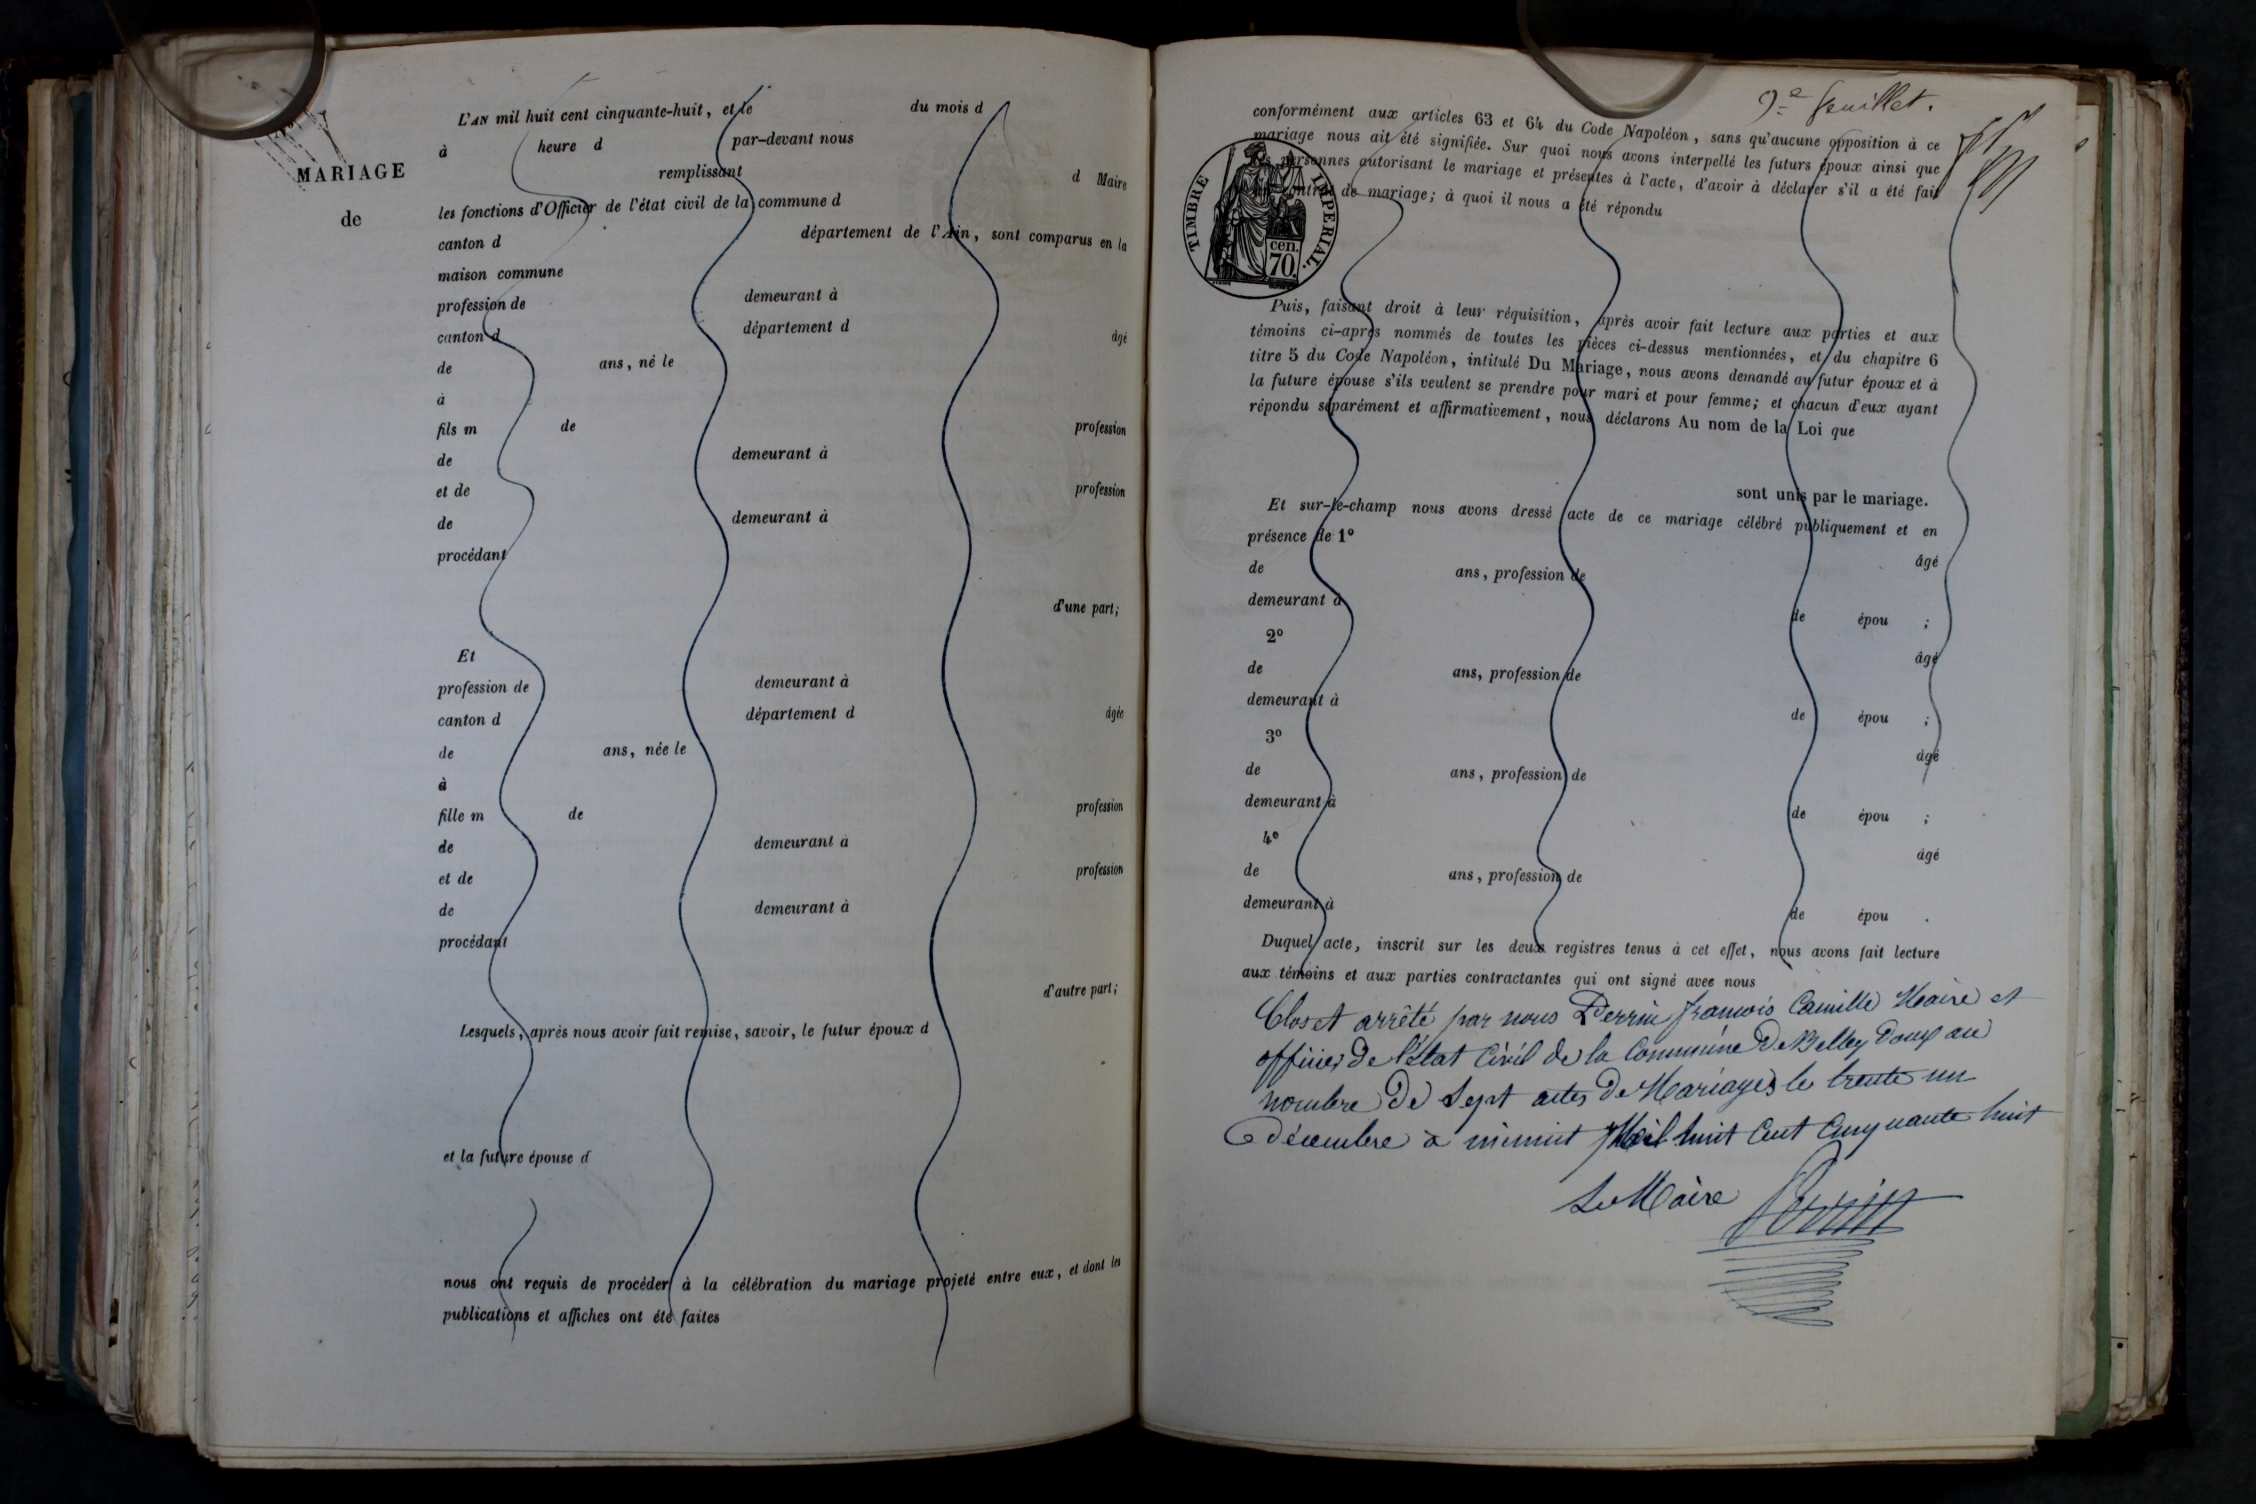 MARIAGE
de
L'AN mil huit cent cinquante-huit, et le du mois d
à heure d par-devant nous
remplissant d Maire
les fonctions d'Officier de l'état civil de la commune d
canton d département de l'Ain, sont comparus en la
maison commune
profession de demeurant à
canton d département d âgé
de ans, né le
à
fils m de profession
de demeurant à
et de profession
de demeurant à
procédant
d'une part;
Et
profession de demeurant à
canton d département d âgée
de ans, née le
à
fille m de profession
de demeurant à
et de profession
de demeurant à
procédant
d'autre part;
Lesquels, après nous avoir fait remise, savoir, le futur époux d
et la future épouse d
nous ont requis de procéder à la célébration du mariage projeté entre eux, et dont les
publications et affiches ont été faites
9e feuillet.
conformément aux articles 63 et 64 du Code Napoléon, sans qu'aucune opposition à ce
mariage nous ait été signifiée. Sur quoi nous avons interpellé les futurs époux ainsi que
personnes autorisant le mariage et présentes à l'acte, d'avoir à déclarer s'il a été fait
contrat de mariage; à quoi il nous a été répondu
TIMBRE IMPERIAL.
70 cen.
Puis, faisant droit à leur réquisition, après avoir fait lecture aux parties et aux
témoins ci-après nommés de toutes les pièces ci-dessus mentionnées, et du chapitre 6
titre 5 du Code Napoléon, intitulé Du Mariage, nous avons demandé au futur époux et à
la future épouse s'ils veulent se prendre pour mari et pour femme; et chacun d'eux ayant
répondu séparément et affirmativement, nous déclarons Au nom de la Loi que
sont unis par le mariage.
Et sur-le-champ nous avons dressé acte de ce mariage célébré publiquement et en
présence de 1º âgé
de ans, profession de
demeurant à de épou ;
2º âgé
de ans, profession de
demeurant à de épou ;
3º âgé
de ans, profession de
demeurant à de épou ;
4º âgé
de ans, profession de
demeurant à de épou .
Duquel acte, inscrit sur les deux registres tenus à cet effet, nous avons fait lecture
aux témoins et aux parties contractantes qui ont signé avec nous
Clos et arrêté par nous Perrin françois Camille Maire et
officier de l'état Civil de la Commune De Belleydoux au
nombre De Sept actes De Mariages le trente un
décembre à minuit Mil huit Cent Cinquante huit
Le Maire Perrin